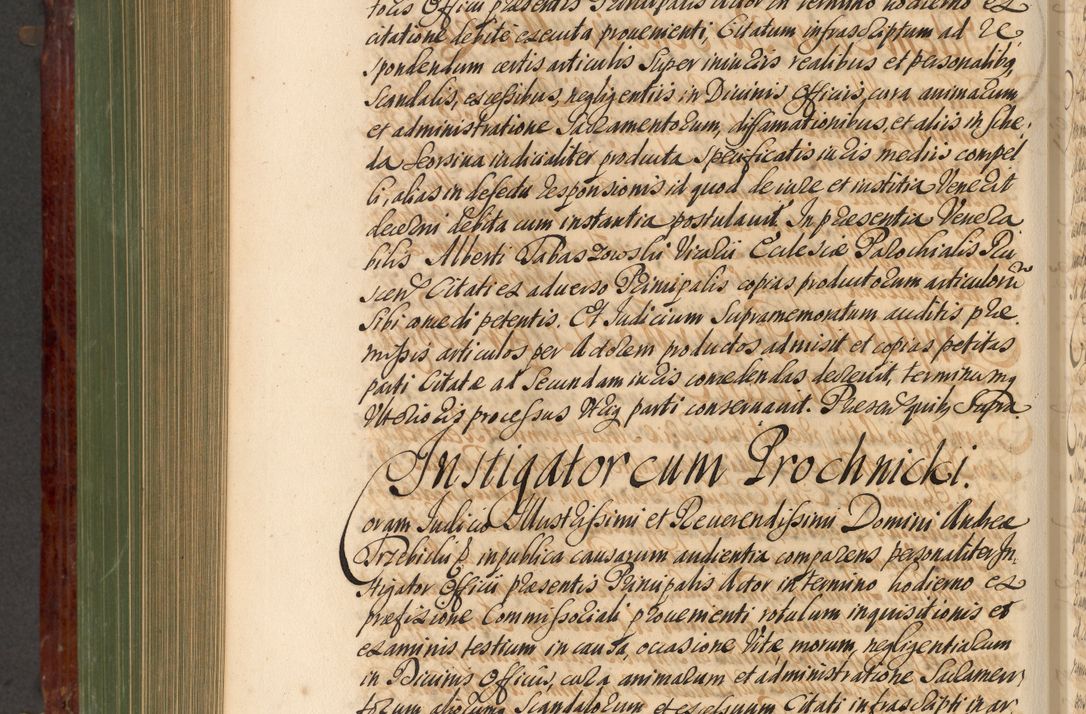 toris Officii præsentis Principalis Actor in termino hodierno ex
citatione debite executa provenienti, Citatum infrascriptum ad re
spondendum certis articulis super iniuriis realibus et personalibq
scandalis, excessibus, negligentiis in Divinis Officiis, cura animarum
et administratione Sacramentorum, diffamationibus, et aliis in sche
da seorsiva iudicialiter producta specificatis iuris mediis compel
li, alias in defectu responsionis id quod de iure et iustitia venerit
decerni debita cum instantia postulavit. In præsentia Venera
bilis Alberti Tabaszowski Vicarii Ecclesiæ Parochialis
Citati ex adverso Principalis copias productorum articulorū
sibi concedi petentis. Et Iudicium Supramemoratum auditis præ
missis articulos per Actorem productos admisit et copias petitas
parti Citatæ ad Secundam iuris concedendas decrevit, terminumq
ulterioris processus utriq parti conservavit. Præsen quib Supra
Instigator cum Prochnicki.
Coram Iudicio Illustrissimi et Reverendissimi Domini Andreæ
Trzebicki in publica causarum audientia comparens personaliter In
stigator Officii præsentis Principalis Actor in termino hodierno ex
præfixione Commissoriali provenienti rotulum inquisitionis et
examinis testium in causa, occasione vitæ morum, negligentiarum
in Divinis Officiis, cura animarum et administratione Sacramen
torum aliorumq Scandalorum et excessuum Citati infrascripti in ar